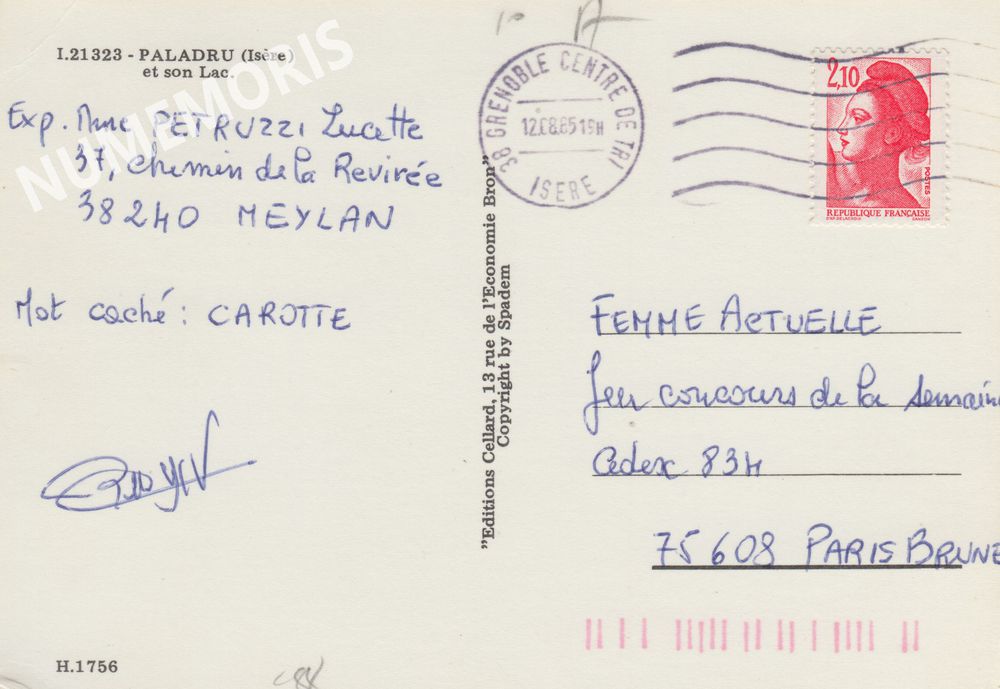 I.21323 - PALADRU (Isère)
et son Lac.
NUMEMORIS
Exp. Mme PETRUZZI Lucette
37, chemin de la Revirée
38240 MEYLAN
Mot caché : CAROTTE
H.1756
"Editions Cellard, 13 rue de l'Economie Bron"
Copyright by Spadem
38 GRENOBLE CENTRE DE TRI
12.08.85 19H
ISERE
2,10
POSTES
REPUBLIQUE FRANÇAISE
D'AP. DELACROIX GANDON
FEMME ACTUELLE
Jeu concours de la semaine
Cedex 834
75608 PARIS BRUNE